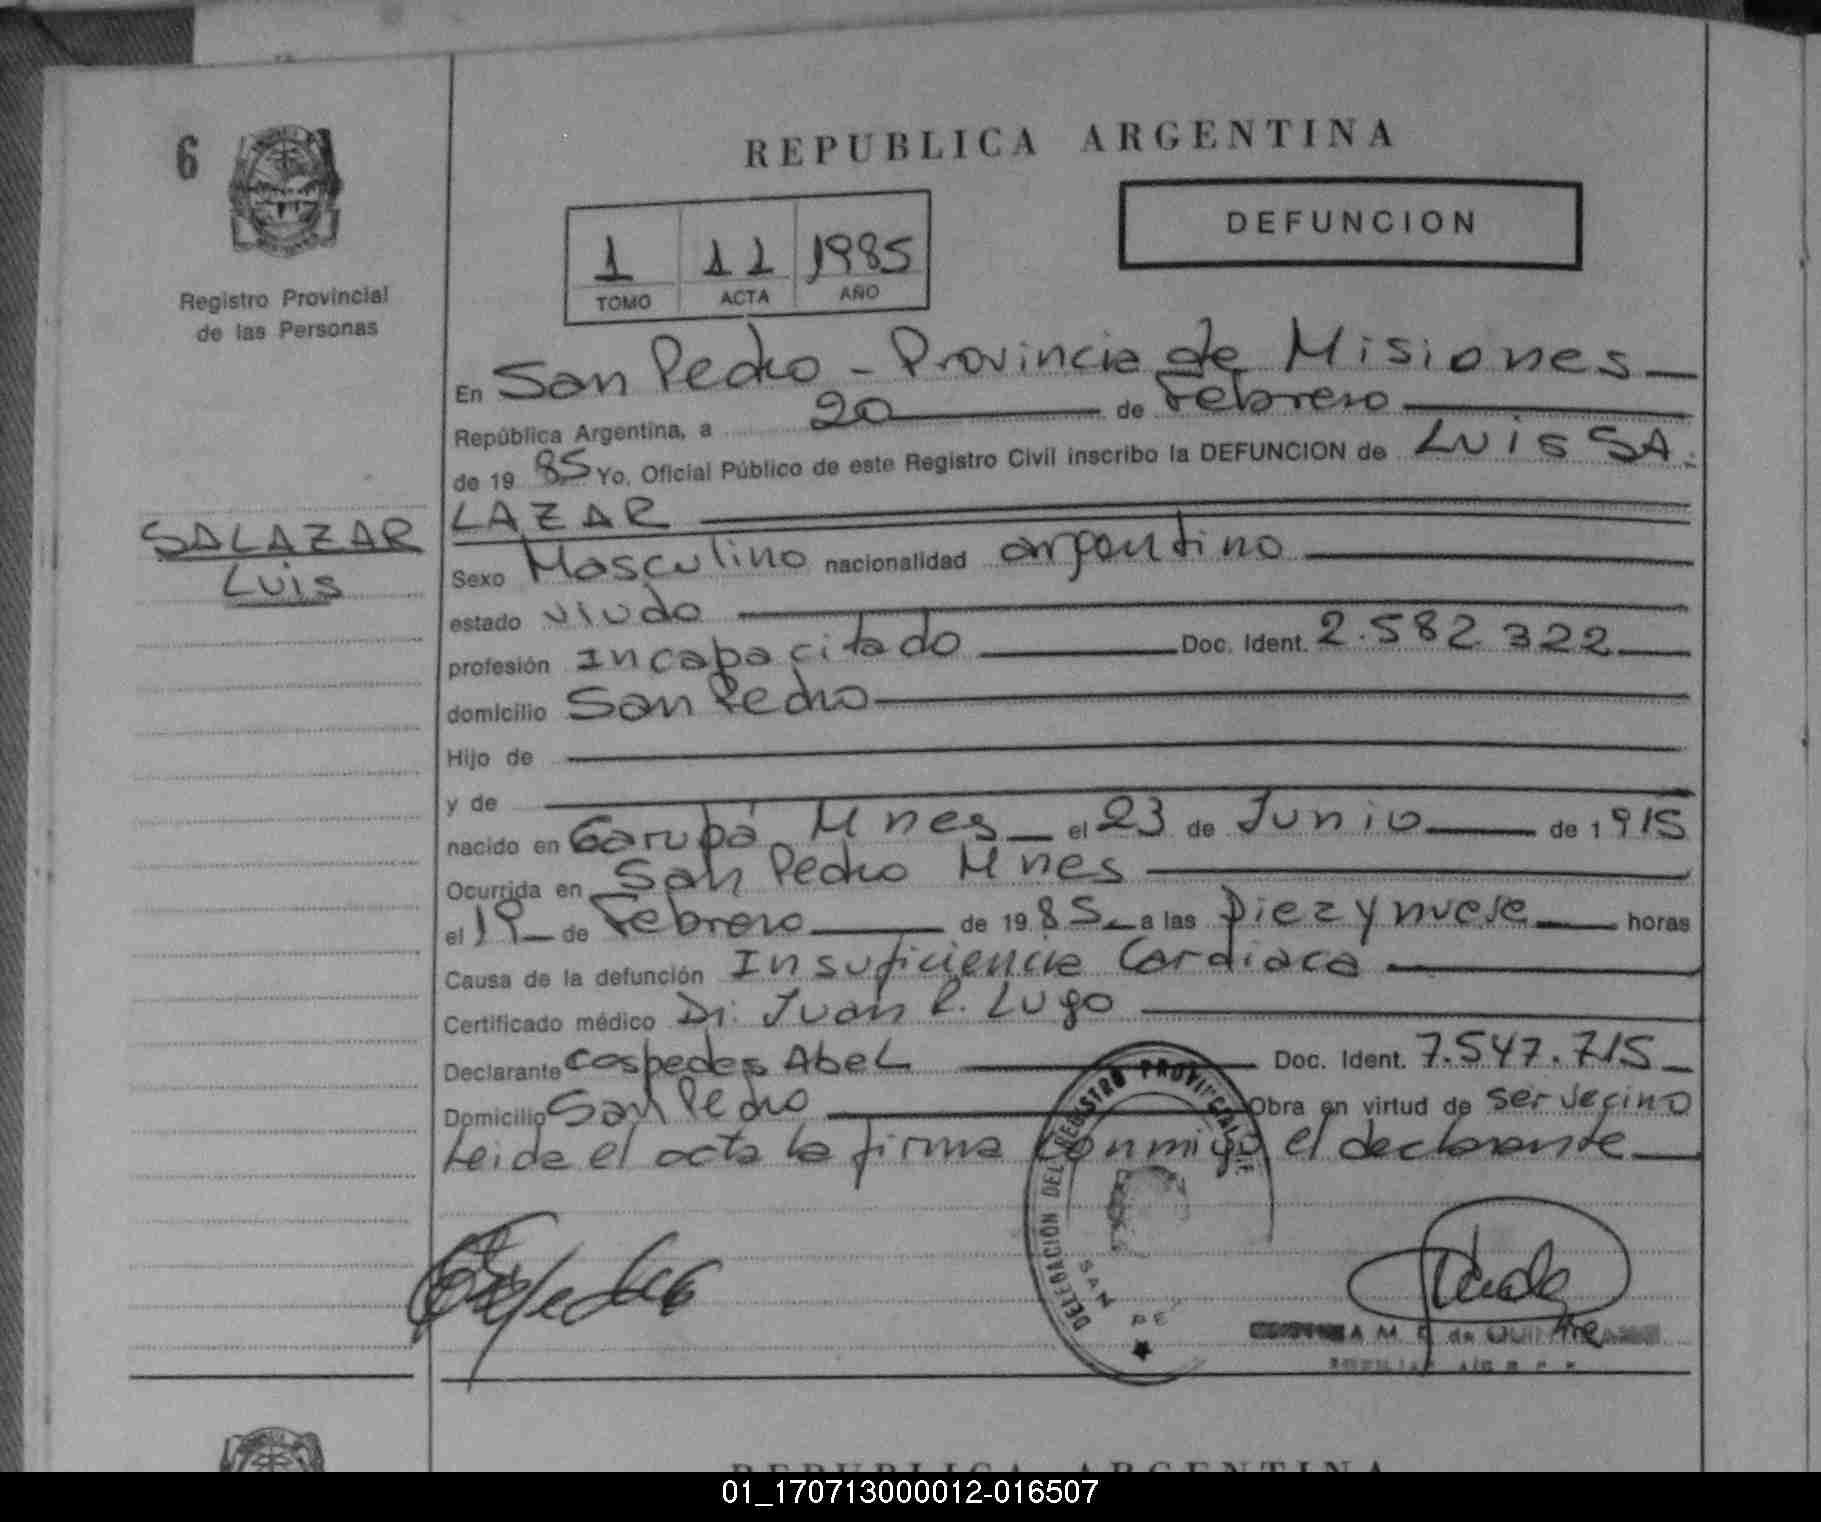 6
REPUBLICA ARGENTINA
DEFUNCION
1 11 1985
TOMO ACTA AÑO
Registro Provincial
de las Personas
SALAZAR
Luis
En San Pedro - Provincia de Misiones
República Argentina, a 20 de Febrero
de 19 85 Yo, Oficial Público de este Registro Civil inscribo la DEFUNCION de Luis SA-
LAZAR
Sexo Masculino nacionalidad argentino
estado viudo
profesión Incapacitado Doc. Ident. 2.582.322
domicilio San Pedro
Hijo de
y de
nacido en Garupá Mnes el 23 de Junio de 1915
Ocurrida en San Pedro Mnes
el 19 de Febrero de 1985 a las Diez y nueve horas
Causa de la defunción Insuficiencia Cardiaca
Certificado médico Dr. Juan R. Lugo
Declarante Cespedes Abel Doc. Ident. 7.547.715
Domicilio San Pedro Obra en virtud de ser vecino
Leida el acta la firma conmigo el declarante
DELEGACIÓN DEL REGISTRO PROVINCIAL DE
SAN PE
A M. de
REPUBLICA ARGENTINA
01_170713000012-016507